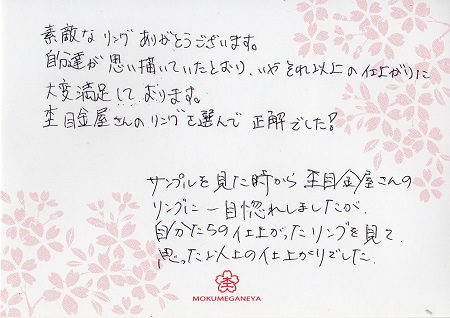 素敵なリングありがとうございます。
自分達が思い描いていたとおり、いやそれ以上の仕上がりに
大変満足しております。
杢目金屋さんのリングを選んで正解でした!
サンプルを見た時から杢目金屋さんの
リングに一目惚れしましたが、
自分たちの仕上がったリングを見て、
思った以上の仕上がりでした。
杢
MOKUMEGANEYA